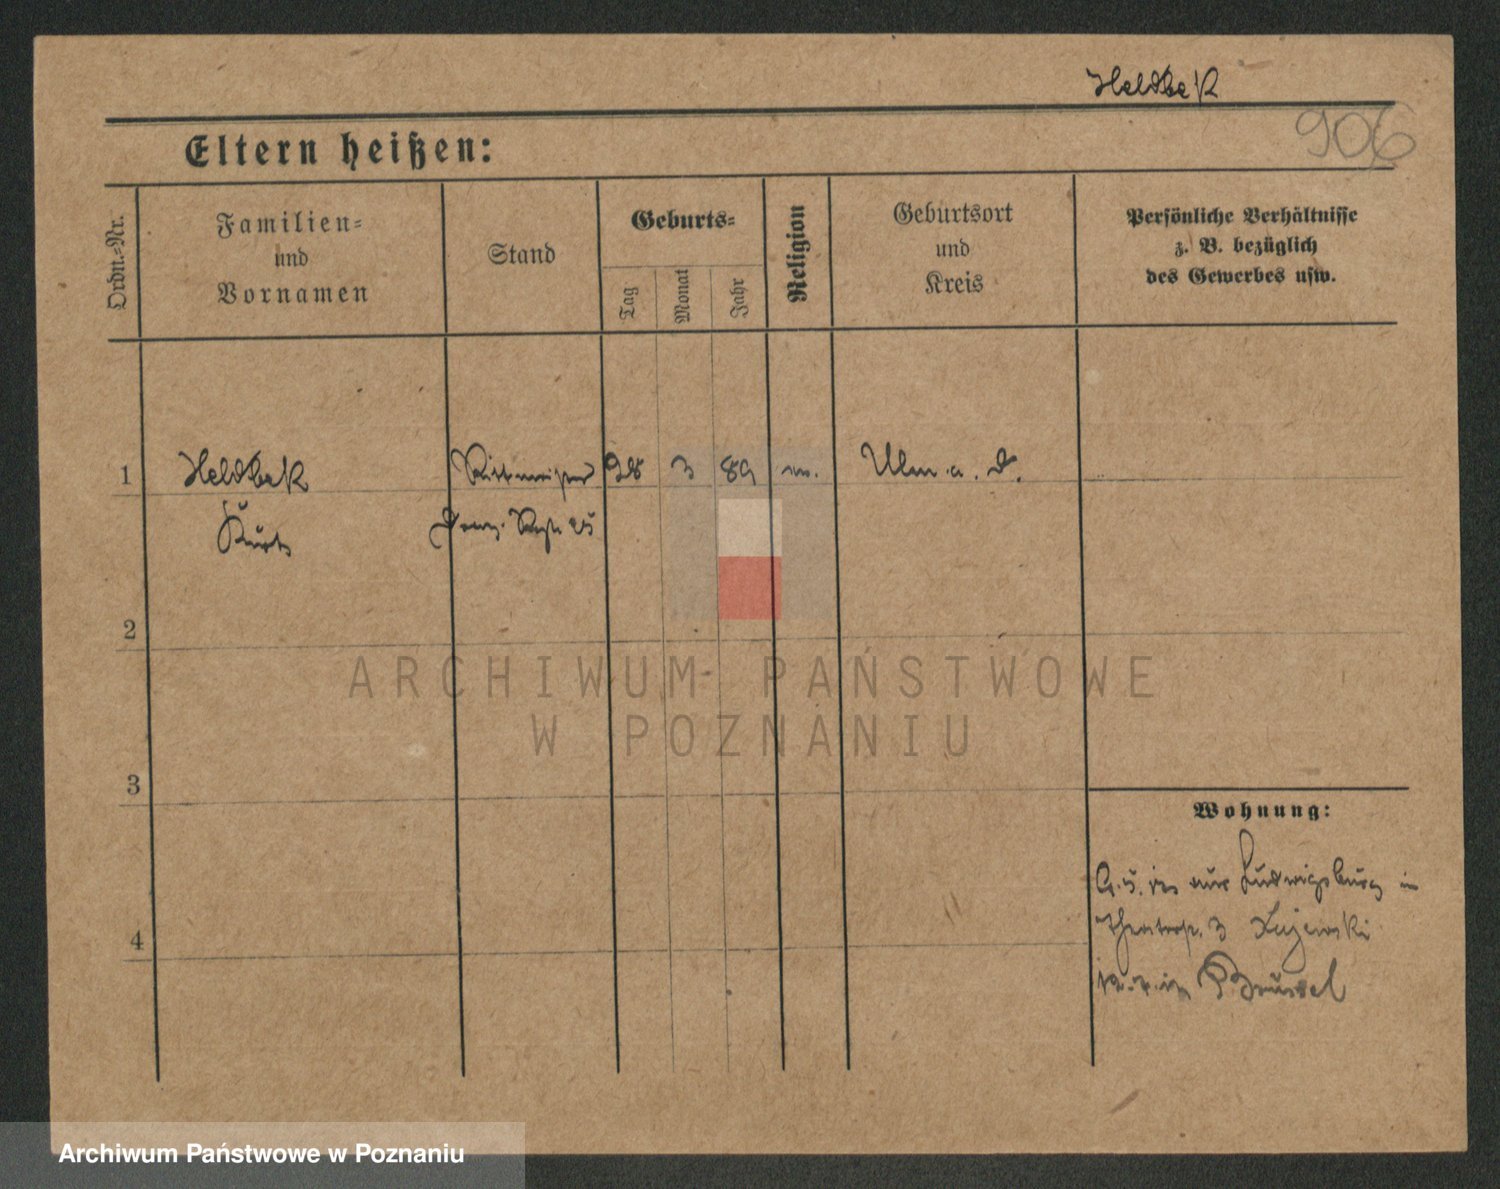 Heldbek
906
Eltern heißen:
Ordn.-Nr.
Familien-
und
Vornamen
Stand
Geburts-
Tag
Monat
Jahr
Religion
Geburtsort
und
Kreis
Persönliche Verhältnisse
z. B. bezüglich
des Gewerbes usw.
1 Heldbek Rittmeister 28 3 89 Ulm a. D.
Kurt Drag. Rgt. 25
2
3
4
Wohnung:
aus Ludwigsburg in
Theaterstr. 3 Lujewski
Brüssel
ARCHIWUM PAŃSTWOWE
W POZNANIU
Archiwum Państwowe w Poznaniu